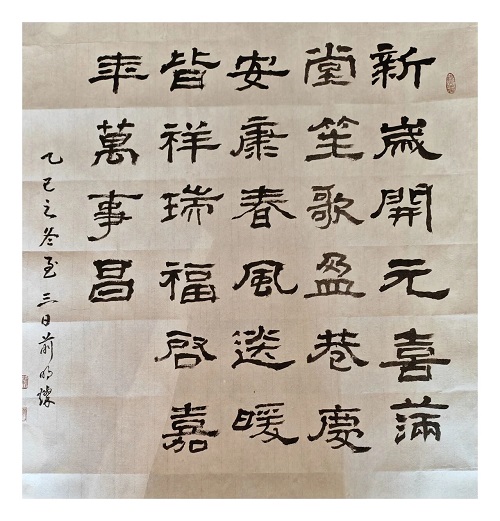 新歲開元喜滿
堂笙歌盈巷慶
安康春風送暖
皆祥瑞福啓嘉
年萬事昌
乙巳之冬至三日前明璨